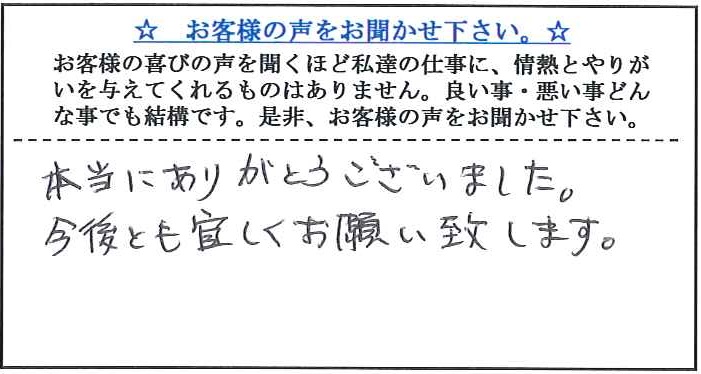 ☆　お客様の声をお聞かせ下さい。☆
お客様の喜びの声を聞くほど私達の仕事に、情熱とやりが
いを与えてくれるものはありません。良い事・悪い事どん
な事でも結構です。是非、お客様の声をお聞かせ下さい。
本当にありがとうございました。
今後とも宜しくお願い致します。